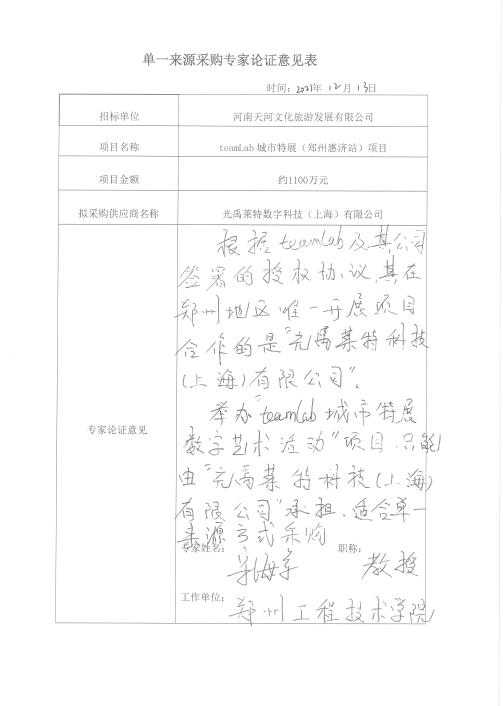 单一来源采购专家论证意见表
时间：2021年 12月 13日
招标单位 河南天河文化旅游发展有限公司
项目名称 teamLab 城市特展（郑州惠济站）项目
项目金额 约1100万元
拟采购供应商名称 光禹莱特数字科技（上海）有限公司
专家论证意见
根据teamLab及其公司
签署的授权协议，其在
郑州地区唯一开展项目
合作的是“光禹莱特科技
(上海)有限公司”。
举办“teamLab城市特展
数字艺术活动”项目，只能
由“光禹莱特科技(上海)
有限公司”承担，适合单一
来源方式采购
专家姓名： 职称： 教授
工作单位： 郑州工程技术学院